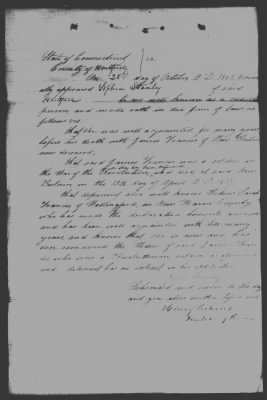 State of Connecticut
County of Hartford } ss.
On 28th day of October A.D. 1843, person
ally appeared of said
person and made oath in due form of law as
follows viz.
That was well acquainted for many years
before his death with James Francis of New Britain
now deceased,
that said James Francis was a soldier in
the War of the Revolution, and died at said New
Britain on the 13th day of April A.D.
that deponent also well knows Widow Sarah
Francis of Wallingford, in New Haven County,
who has made the declaration hereunto annexed
and has been well acquainted with her many
years, and knows that she is now and has
ever remained the Widow of said James Fran
cis who was a Revolutionary soldier as aforesaid
and deponent has no interest in her application
Subscribed and sworn to the day
and year above written before me
Henry
Justice of Peace